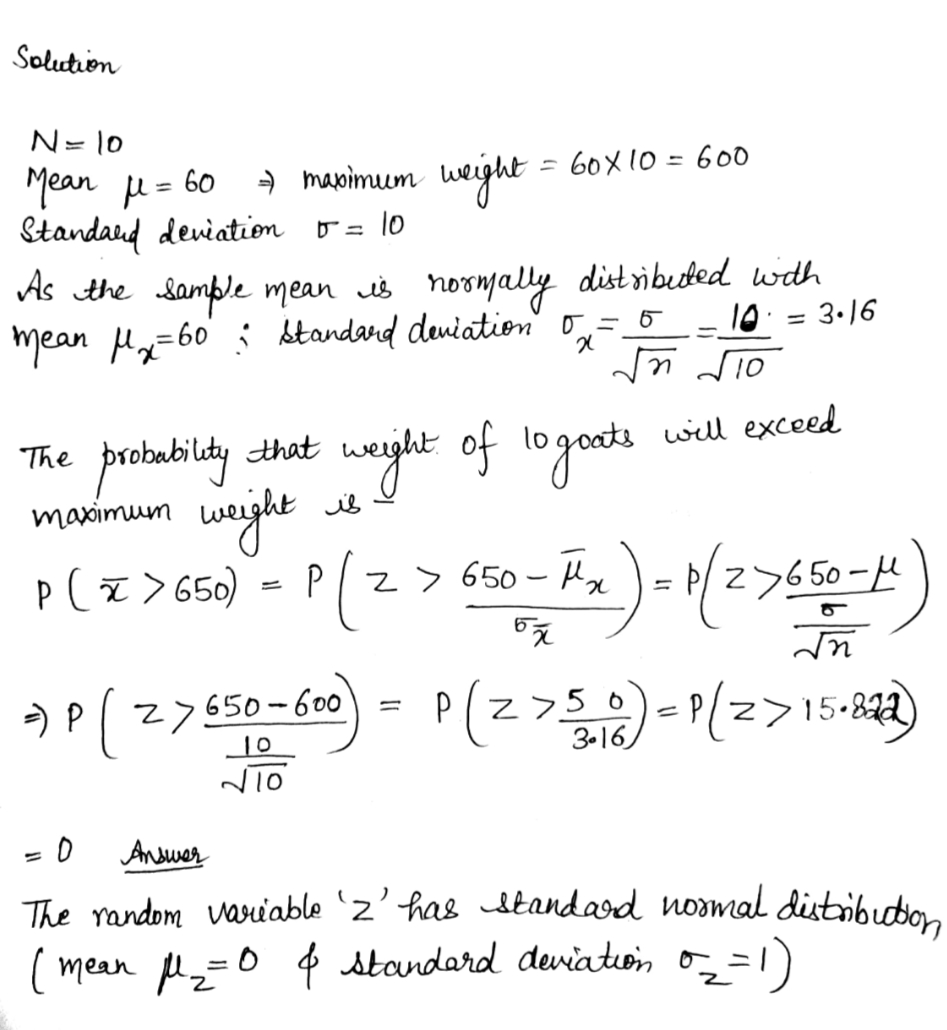 Solution
N = 10
Mean μ = 60 ⇒ maximum weight = 60 X 10 = 600
Standard deviation σ = 10
As the sample mean is normally distributed with
mean μₓ = 60 ; standard deviation σₓ = σ/√n = 10/√10 = 3.16
The probability that weight of 10 goats will exceed
maximum weight is –
P ( x̄ > 650) = P ( z > (650 – μ̄ₓ)/σ_x̄ ) = P ( z > (650 – μ)/(σ/√n) )
⇒ P ( z > (650 – 600)/(10/√10) ) = P ( z > 50/3.16 ) = P ( z > 15.822 )
= 0 Answer
The random variable 'z' has standard normal distribution
( mean μ_z = 0 & standard deviation σ_z = 1 )